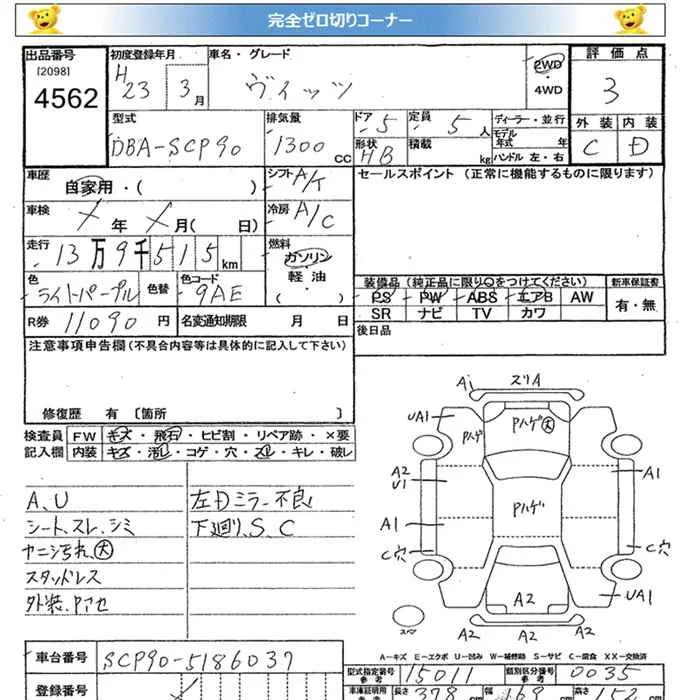 完全ゼロ切りコーナー
出品番号 初度登録年月 車名・グレード 評価点
[2098] H 23 3月 ヴィッツ 2WD・4WD 3
4562
型式 排気量 ドア 5 定員 5人 ディーラー・並行 外装 内装
DBA-SCP90 1300cc 形状 HB 積載 kg モデル年式 年 C D
ハンドル 左・右
車歴 自家用・( ) シフト A/T セールスポイント (正常に機能するものに限ります)
車検 年 月( 日) 冷房 A/C
走行 13万9千515km 燃料 ガソリン・軽油・( )
色 ライトパープル 色替 色コード 9AE
装備品 (純正品に限り○をつけてください) 新車保証書
PS PW ABS エアB AW 有・無
SR ナビ TV カワ
R券 11090円 名変通知期限 月 日 後日品
注意事項申告欄(不具合内容等は具体的に記入して下さい)
修復歴 有 〔箇所 〕
検査員 FW キズ・飛石・ヒビ割・リペア跡・×要
記入欄 内装 キズ・汚レ・コゲ・穴・スレ・キレ・破レ
A、U 左Dミラー不良
シート、スレ、シミ 下廻り、S、C
ヤニシ汚れ、大
スタッドレス
外装、Pアセ
A1 スリA
UA1 Pハゲ Pハゲ大
A2 A1
U1
Pハゲ
A1
C穴 C穴
A2 UA1
スペア A2 A2 A2
A-キズ E-エクボ U-凹み W-補修跡 S-サビ C-腐食 XX-交換済
車台番号 SCP90-5186037
型式指定番号 参考 15011 類別区分番号 参考 0035
登録番号 車庫証明用 長さ 378 cm 幅 169 cm 高さ 152